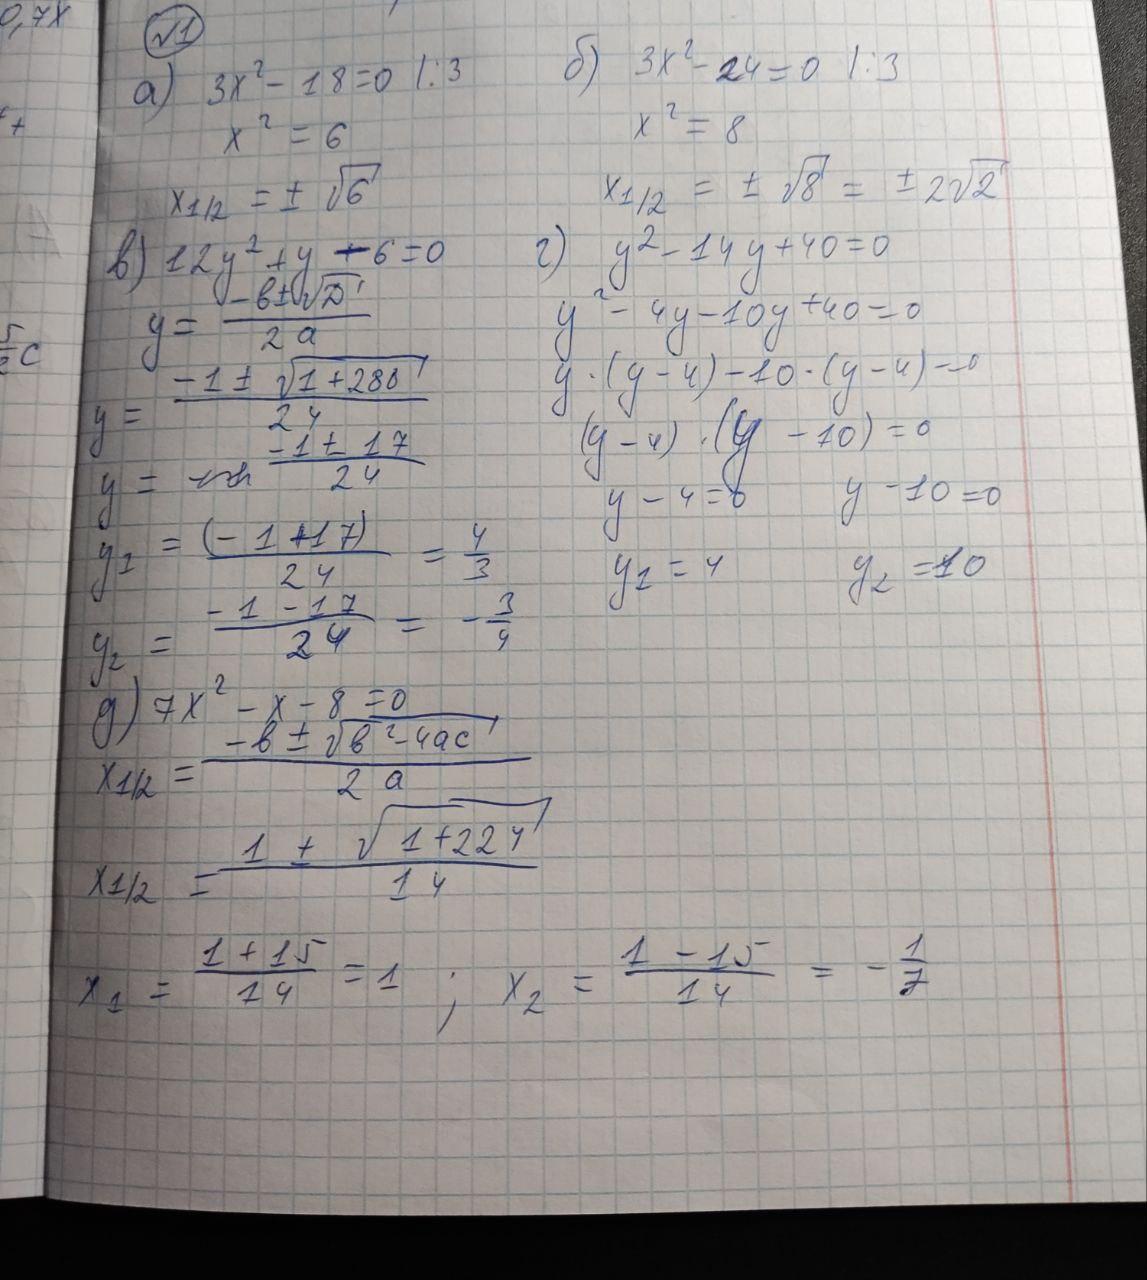 0,7x
√1
а) 3x² - 18 = 0 |:3
x² = 6
x1/2 = ± √6
б) 3x² - 24 = 0 |:3
x² = 8
x1/2 = ± √8 = ± 2√2
в) 12y² + y - 6 = 0
y = (-в ± √D) / 2a
y = (-1 ± √(1+288)) / 24
y = (-1 ± 17) / 24
y1 = (-1+17) / 24 = 4/3
y2 = (-1-17) / 24 = -3/4
г) y² - 14y + 40 = 0
y² - 4y - 10y + 40 = 0
y·(y-4) - 10·(y-4) = 0
(y-4)·(y-10) = 0
y - 4 = 0 y - 10 = 0
y1 = 4 y2 = 10
д) 7x² - x - 8 = 0
x1/2 = (-в ± √(в²-4ac)) / 2a
x1/2 = (1 ± √(1+224)) / 14
x1 = (1+15) / 14 = 1 ; x2 = (1-15) / 14 = -1/7